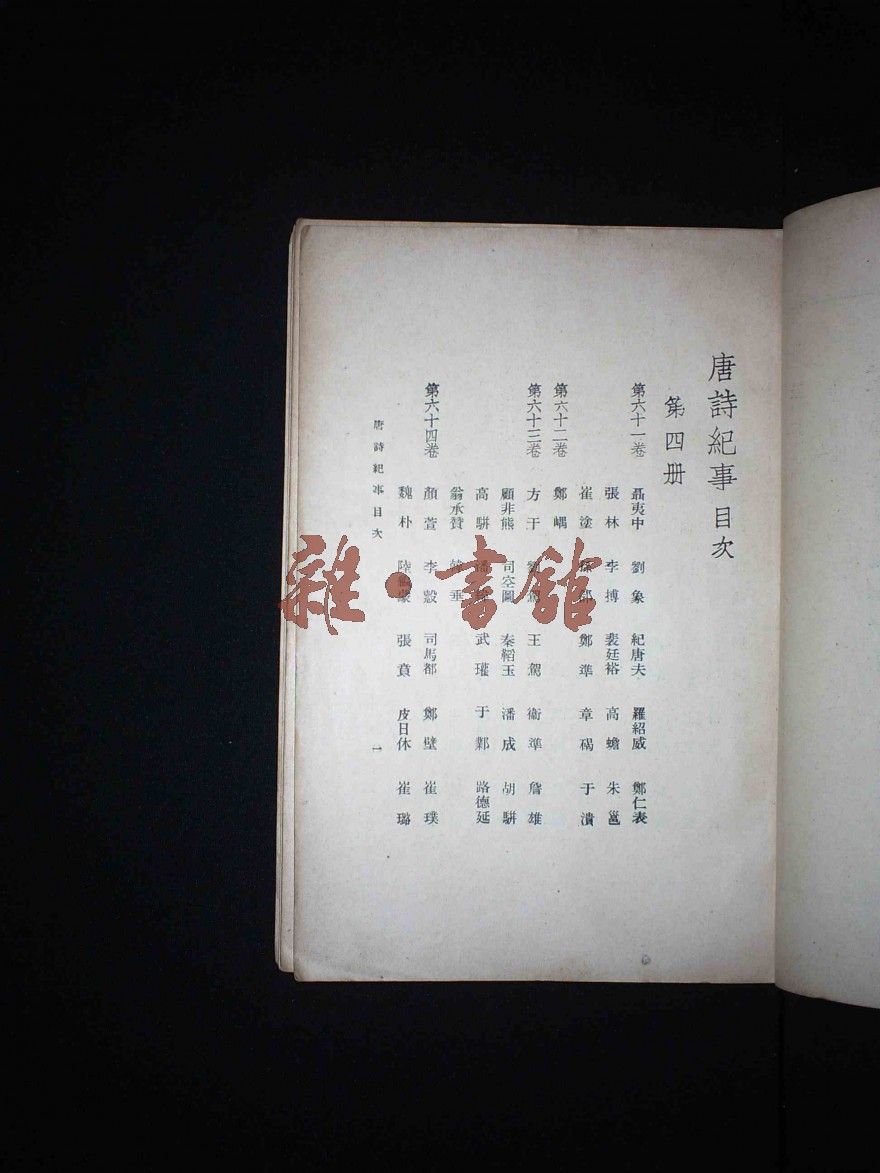 唐詩紀事目次
第四册
第六十一卷 聶夷中 劉象 紀唐夫 羅紹威 鄭仁表
張林 李搏 裴廷裕 高蟾 朱邕
崔塗 鄭準 章碣 于濆
第六十二卷 鄭嵎
第六十三卷 方干 劉駕 王駕 衛準 詹雄
顧非熊 司空圖 秦韜玉 潘成 胡騈
高騈 潘 武瓘 于鄴 路德延
翁承贊 韓垂
第六十四卷 顏萱 李縠 司馬都 鄭璧 崔璞
魏朴 陸龜蒙 張賁 皮日休 崔璐
唐詩紀事目次 一
雜·書館